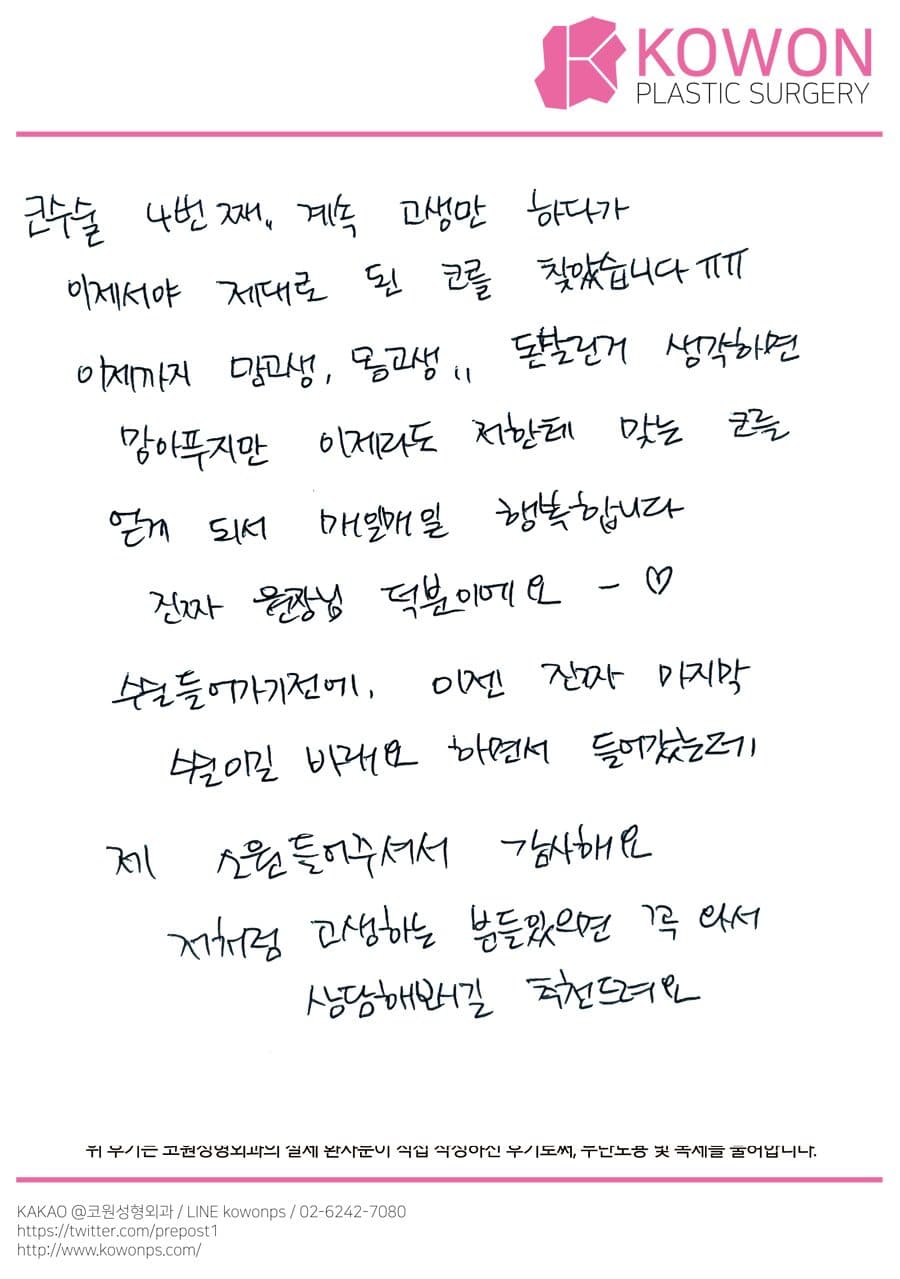 KOWON
PLASTIC SURGERY
코수술 4번째.. 계속 고생만 하다가
이제서야 제대로 된 코를 찾았습니다 ㅠㅠ
이제까지 맘고생, 몸고생,, 돈날린거 생각하면
맘아푸지만 이제라도 저한테 맞는 코를
얻게 되서 매일매일 행복합니다
진짜 원장님 덕분이에요 - ♡
수술들어가기전에, 이젠 진짜 마지막
수술이길 바래요 하면서 들어갔는데
제 소원들어주셔서 감사해요
저처럼 고생하는 분들있으면 꼭 와서
상담해보시길 추천드려요
위 후기는 코원성형외과의 실제 환자분이 직접 작성하신 후기로써, 무단도용 및 복제를 불허합니다.
KAKAO @코원성형외과 / LINE kowonps / 02-6242-7080
https://twitter.com/prepost1
http://www.kowonps.com/